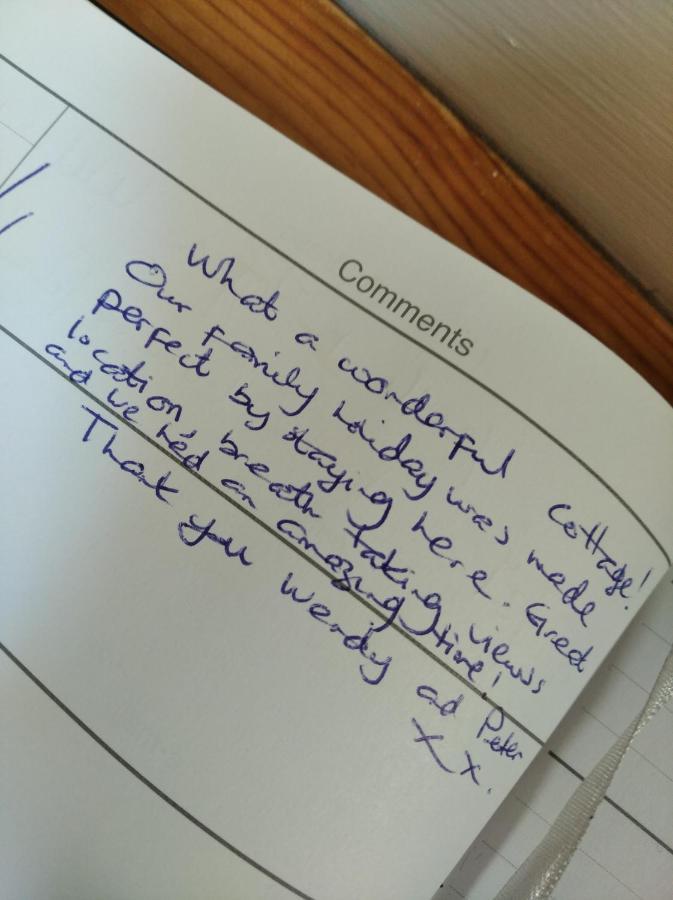 Comments
What a wonderful cottage!
Our family holiday was made
perfect by staying here. Great
location, breath taking views
and we had an amazing time!
Thank you Wendy ad Peter
xx.